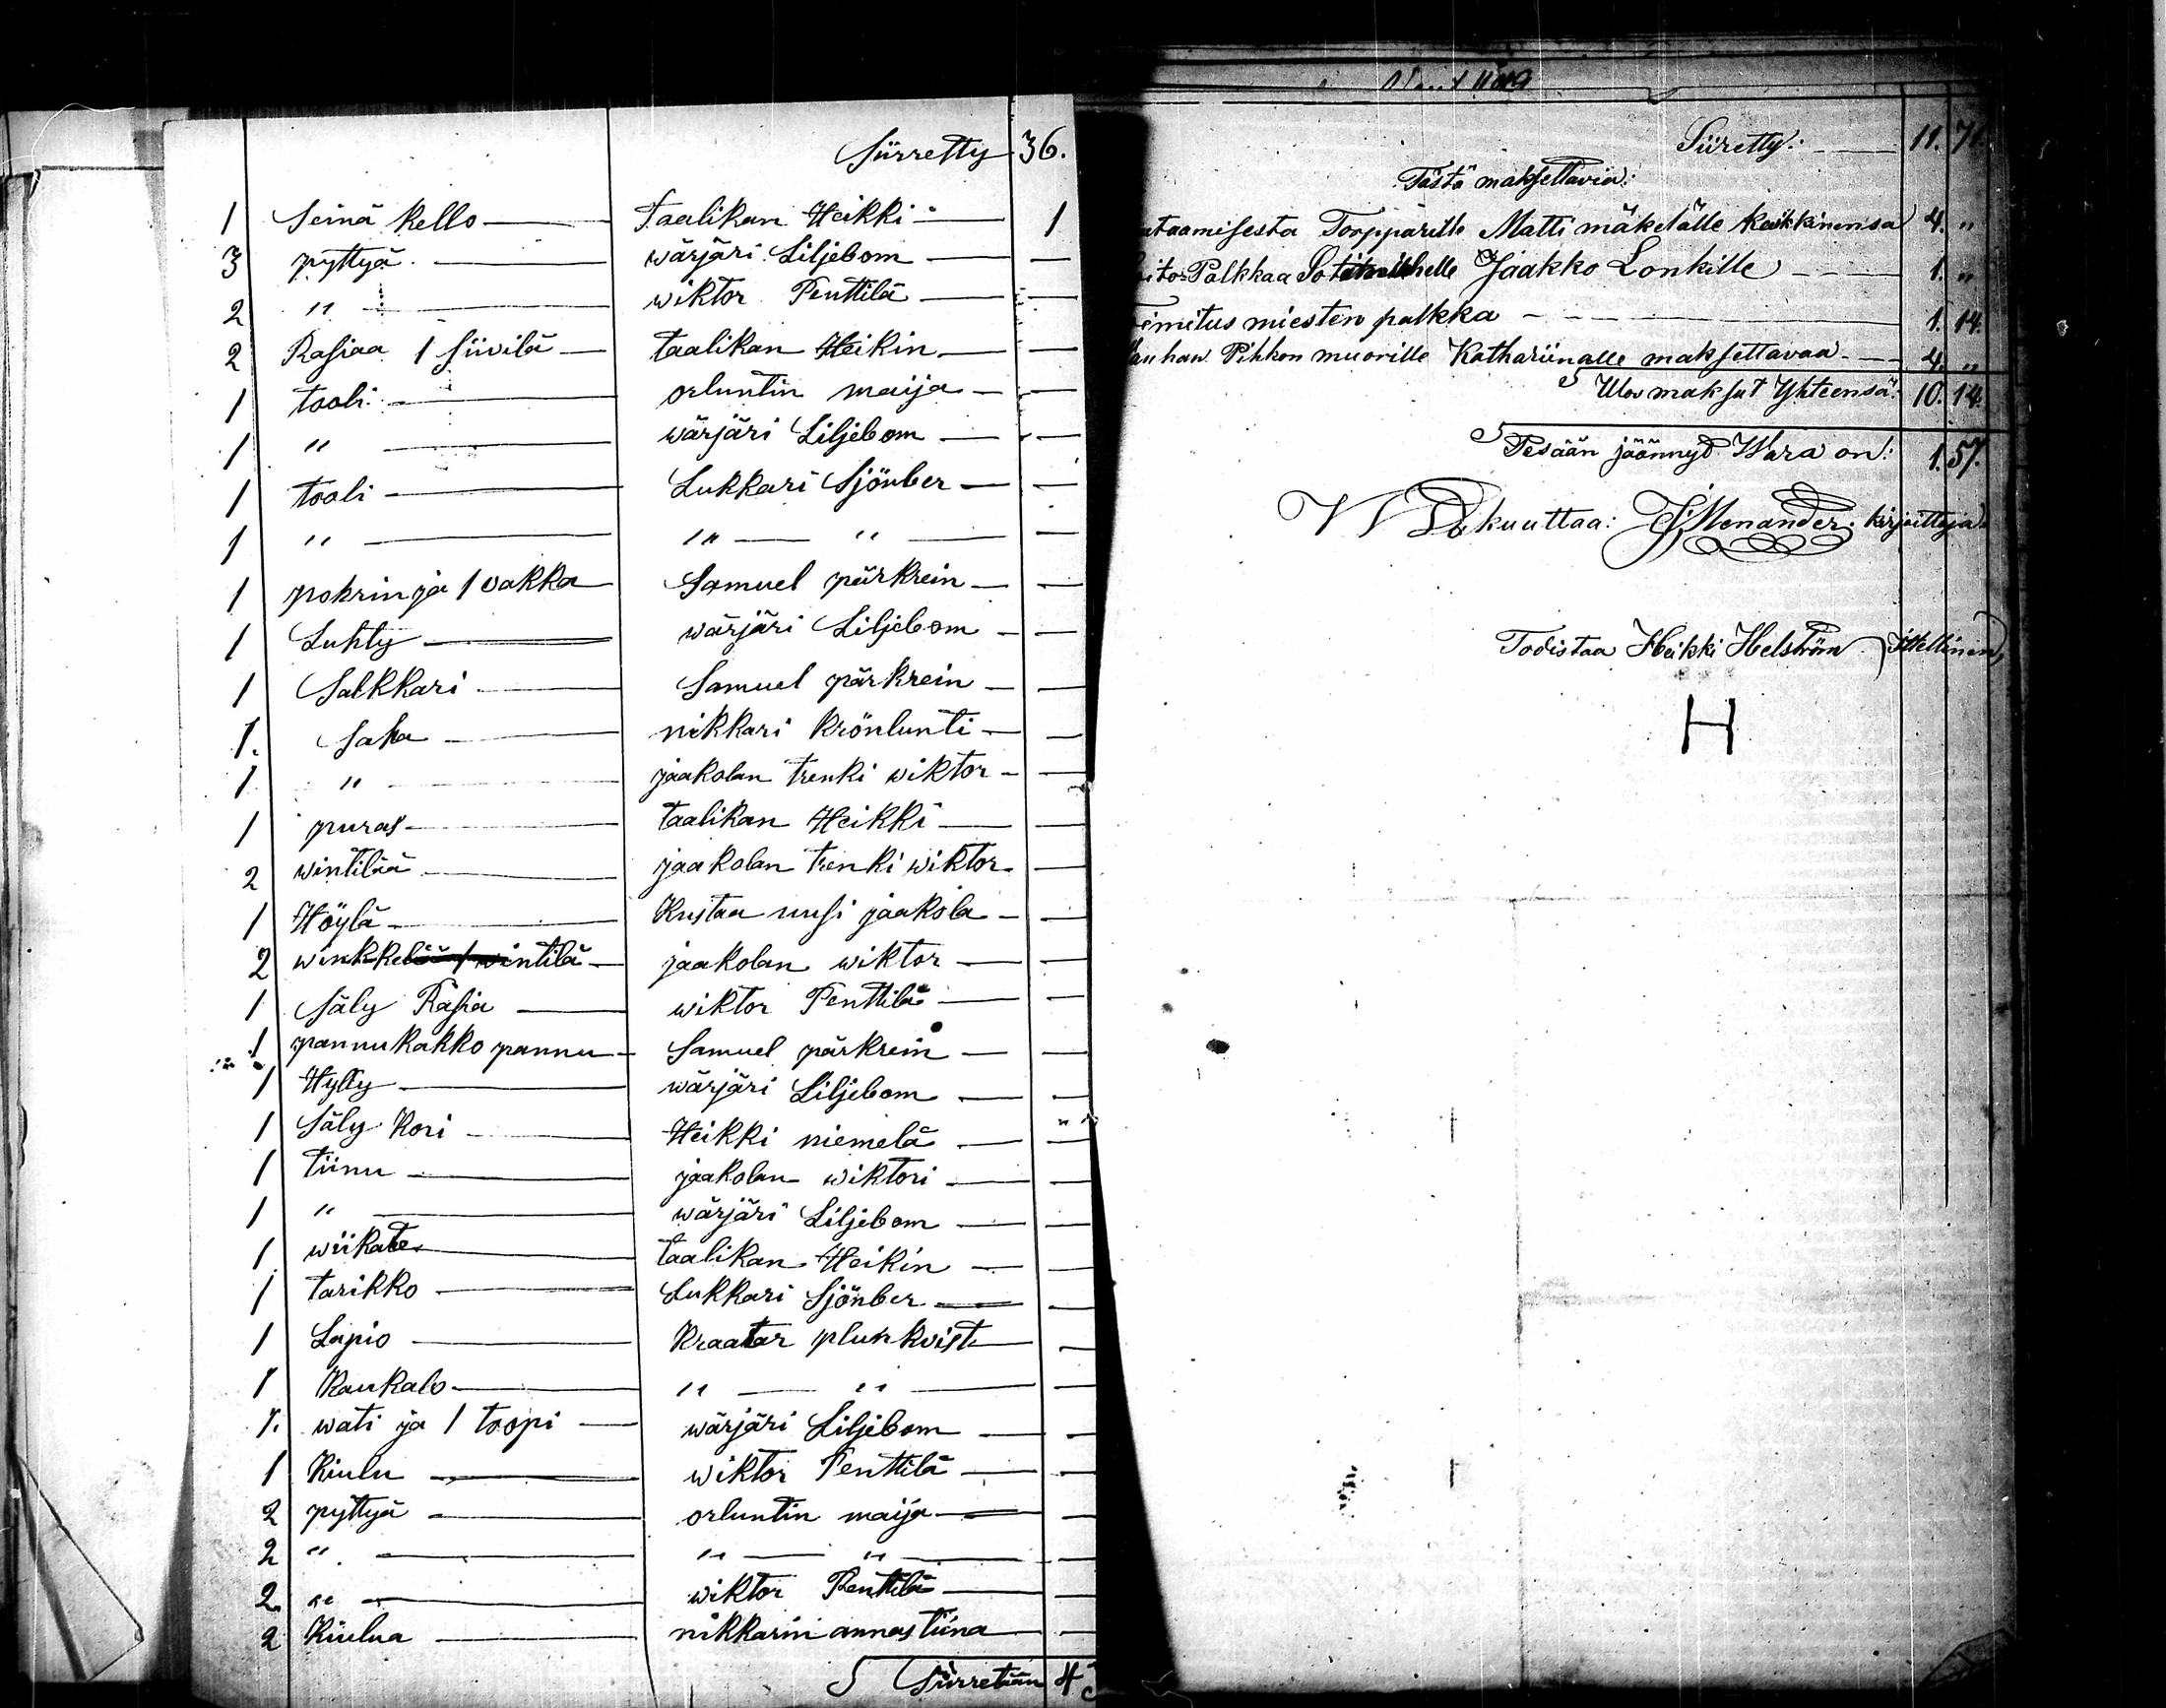 Siirretty 36.
1 Seinä kello — Taalikan Heikki — 1
3 pyttyä — wärjäri Liljebom —
2 " — wiktor Penttilä —
2 Rasiaa 1 siivilä — taalikan Heikin —
1 tooli — orluntin maija —
1 " — wärjäri Liljebom —
1 tooli — Lukkari Sjönber —
1 " — " — " —
1 pokrin ja 1 vakka — Samuel pärkrein —
1 Luhty — wärjäri Liljebom —
1 Salkkari — Samuel pärkrein —
1. Saha — nikkari krönlunti —
1 " — jaakolan trenki wiktor —
1 puras — taalikan Heikki —
2 wintilää — jaakolan trenki wiktor —
1 Höylä — Kustaa uusi jaakola —
2 winkkeliä 1 wintilä — jaakolan wiktor —
1 Säly Rasia — wiktor Penttilä —
1 pannukakko pannu — Samuel pärkrein —
1 Hylly — wärjäri Liljebom —
1 Säly kori — Heikki niemelä —
1 tiinu — jaakolan wiktori —
1 " — wärjäri Liljebom —
1 wiikate — taalikan Heikin —
1 tarikko — Lukkari Sjönber —
1 Lapio — kraatar plunkvist —
1 Kaukalo — " — " —
1. wati ja 1 toopi — wärjäri Liljebom —
1 Kiulu — wiktor Penttilä —
2 pyttyä — orluntin maija —
2 " — " — " —
2 " — wiktor Penttilä —
2 Kiulua — nikkarin annastiina —
Siirretään 43
Siiretty: — 11. 71
Tästä maksettavia:
Torpparille Matti mäkelälle kaikkinensa 4. "
Palkkaa Jaakko Lonkille — 1. "
miesten palkka — 1. 14.
Pihkon muorille Kathariinalle maksettavaa — 4. "
Ulos maksut Yhteensä: 10. 14.
Pesään jäännyt Wara on: 1. 57.
Wakuuttaa: J. Menander. kirjoittaja.
Todistaa Heikki Helström Ittellinen,
H